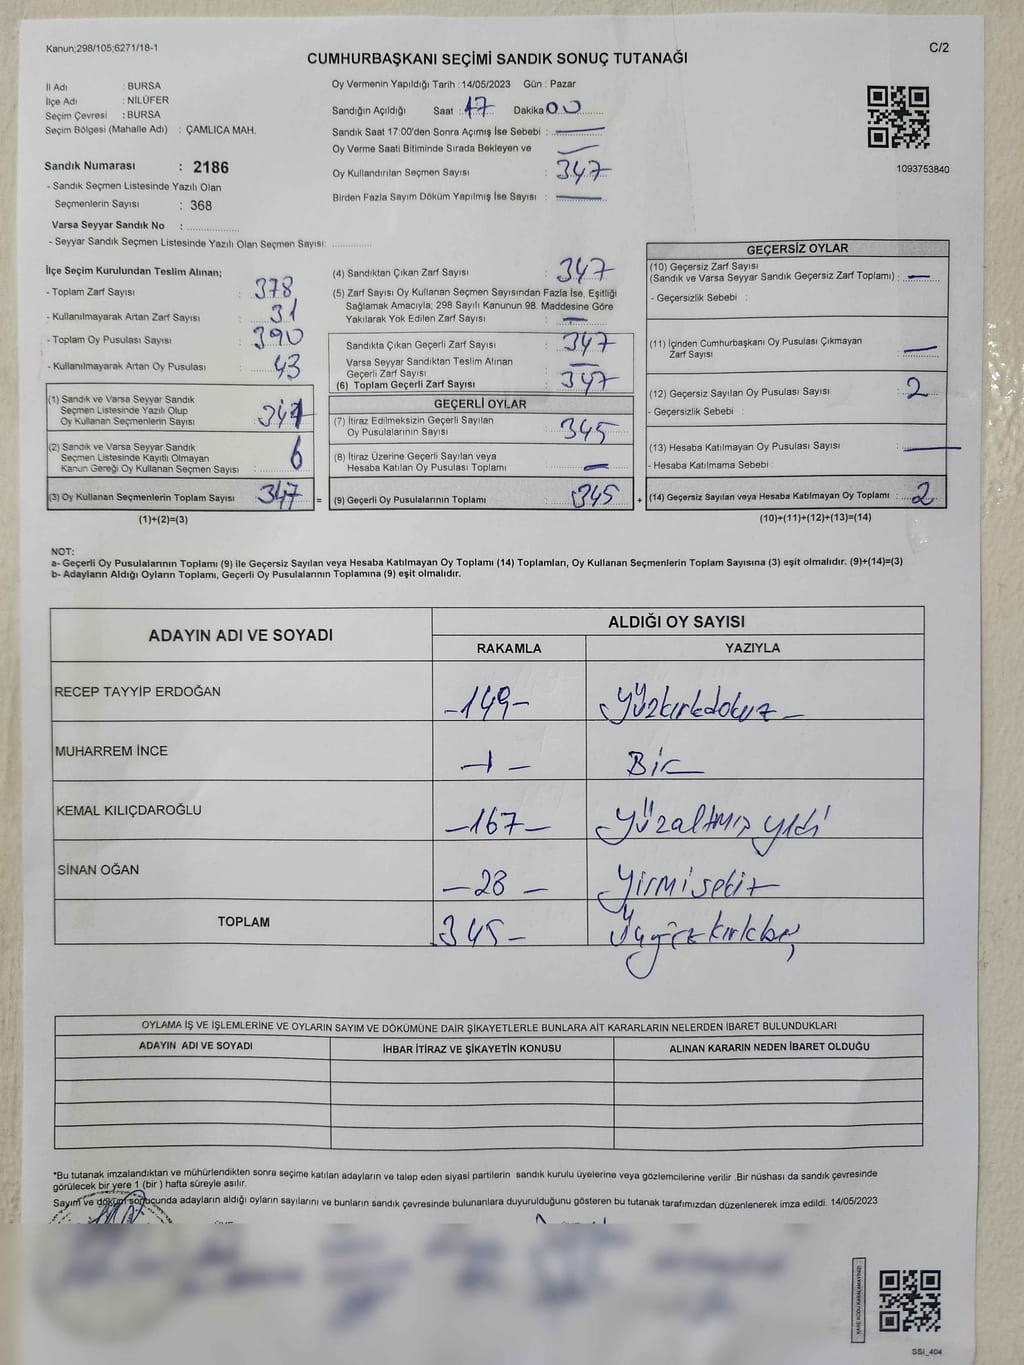 Kanun;298/105;6271/18-1
C/2
CUMHURBAŞKANI SEÇİMİ SANDIK SONUÇ TUTANAĞI
İl Adı : BURSA
İlçe Adı : NİLÜFER
Seçim Çevresi : BURSA
Seçim Bölgesi (Mahalle Adı) : ÇAMLICA MAH.
Sandık Numarası : 2186
- Sandık Seçmen Listesinde Yazılı Olan
Seçmenlerin Sayısı : 368
Varsa Seyyar Sandık No :
- Seyyar Sandık Seçmen Listesinde Yazılı Olan Seçmen Sayısı:
Oy Vermenin Yapıldığı Tarih : 14/05/2023 Gün : Pazar
Sandığın Açıldığı Saat : 17 Dakika 00
Sandık Saat 17:00'den Sonra Açımış İse Sebebi : —
Oy Verme Saati Bitiminde Sırada Bekleyen ve —
Oy Kullandırılan Seçmen Sayısı : 347
Birden Fazla Sayım Döküm Yapılmış İse Sayısı : —
1093753840
İlçe Seçim Kurulundan Teslim Alınan;
- Toplam Zarf Sayısı : 378
- Kullanılmayarak Artan Zarf Sayısı : 31
- Toplam Oy Pusulası Sayısı : 390
- Kullanılmayarak Artan Oy Pusulası : 43
(1) Sandık ve Varsa Seyyar Sandık
Seçmen Listesinde Yazılı Olup
Oy Kullanan Seçmenlerin Sayısı : 341
(2) Sandık ve Varsa Seyyar Sandık
Seçmen Listesinde Kayıtlı Olmayan
Kanun Gereği Oy Kullanan Seçmen Sayısı : 6
(3) Oy Kullanan Seçmenlerin Toplam Sayısı : 347 =
(1)+(2)=(3)
(4) Sandıktan Çıkan Zarf Sayısı : 347
(5) Zarf Sayısı Oy Kullanan Seçmen Sayısından Fazla İse, Eşitliği
Sağlamak Amacıyla; 298 Sayılı Kanunun 98. Maddesine Göre
Yakılarak Yok Edilen Zarf Sayısı : —
Sandıkta Çıkan Geçerli Zarf Sayısı : 347
Varsa Seyyar Sandıktan Teslim Alınan
Geçerli Zarf Sayısı : —
(6) Toplam Geçerli Zarf Sayısı : 347
GEÇERLİ OYLAR
(7) İtiraz Edilmeksizin Geçerli Sayılan
Oy Pusulalarının Sayısı : 345
(8) İtiraz Üzerine Geçerli Sayılan veya
Hesaba Katılan Oy Pusulası Toplamı : —
(9) Geçerli Oy Pusulalarının Toplamı : 345 +
GEÇERSİZ OYLAR
(10) Geçersiz Zarf Sayısı
(Sandık ve Varsa Seyyar Sandık Geçersiz Zarf Toplamı) : —
- Geçersizlik Sebebi :
(11) İçinden Cumhurbaşkanı Oy Pusulası Çıkmayan
Zarf Sayısı : —
(12) Geçersiz Sayılan Oy Pusulası Sayısı : 2
- Geçersizlik Sebebi :
(13) Hesaba Katılmayan Oy Pusulası Sayısı : —
- Hesaba Katılmama Sebebi :
(14) Geçersiz Sayılan veya Hesaba Katılmayan Oy Toplamı : 2
(10)+(11)+(12)+(13)=(14)
NOT:
a- Geçerli Oy Pusulalarının Toplamı (9) ile Geçersiz Sayılan veya Hesaba Katılmayan Oy Toplamı (14) Toplamları, Oy Kullanan Seçmenlerin Toplam Sayısına (3) eşit olmalıdır. (9)+(14)=(3)
b- Adayların Aldığı Oyların Toplamı, Geçerli Oy Pusulalarının Toplamına (9) eşit olmalıdır.
ADAYIN ADI VE SOYADI ALDIĞI OY SAYISI
RAKAMLA YAZIYLA
RECEP TAYYİP ERDOĞAN -149- Yüzkırkdokuz
MUHARREM İNCE -1- Bir
KEMAL KILIÇDAROĞLU -167- Yüzaltmış yedi
SİNAN OĞAN -28- Yirmisekiz
TOPLAM 345- Üçyüzkırkbeş
OYLAMA İŞ VE İŞLEMLERİNE VE OYLARIN SAYIM VE DÖKÜMÜNE DAİR ŞİKAYETLERLE BUNLARA AİT KARARLARIN NELERDEN İBARET BULUNDUKLARI
ADAYIN ADI VE SOYADI İHBAR İTİRAZ VE ŞİKAYETİN KONUSU ALINAN KARARIN NEDEN İBARET OLDUĞU
*Bu tutanak imzalandıktan ve mühürlendikten sonra seçime katılan adayların ve talep eden siyasi partilerin sandık kurulu üyelerine veya gözlemcilerine verilir .Bir nüshası da sandık çevresinde
görülecek bir yere 1 (bir ) hafta süreyle asılır.
Sayım ve döküm sonucunda adayların aldığı oyların sayılarını ve bunların sandık çevresinde bulunanlara duyurulduğunu gösteren bu tutanak tarafımızdan düzenlenerek imza edildi. 14/05/2023
KARE KODU KARALAMAYINIZ!
SSİ_404